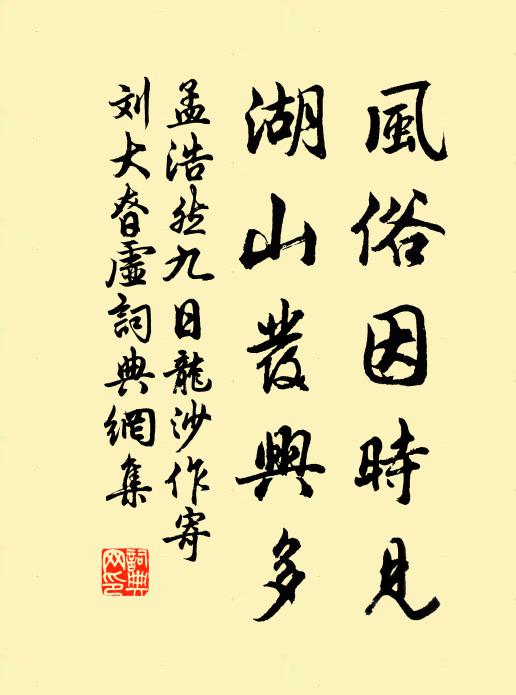 風俗因時見
湖山發興多
孟浩然九日龍沙作寄
刘大昚虛詞典網集
詞典網印